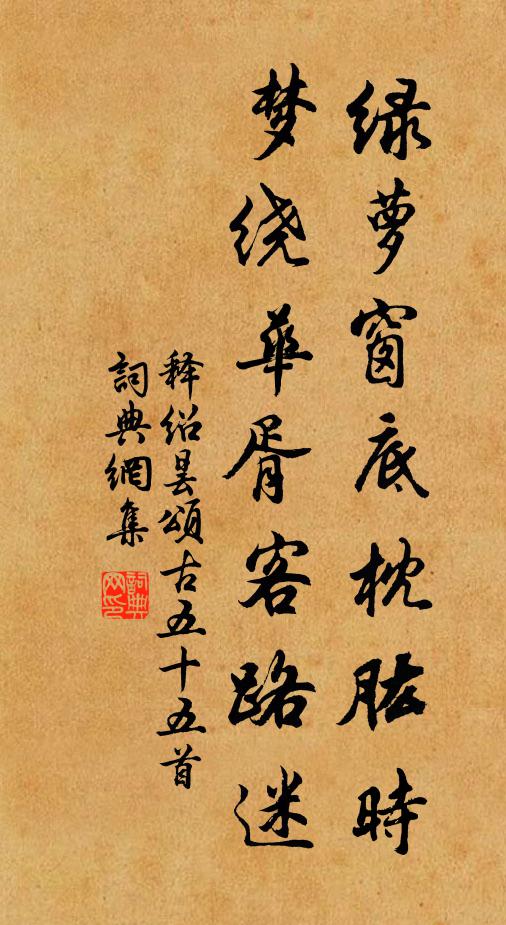 绿萝窗底枕肱時
梦绕華胥客路迷
释绍昙頌古五十五首
詞典網集
詞典网印